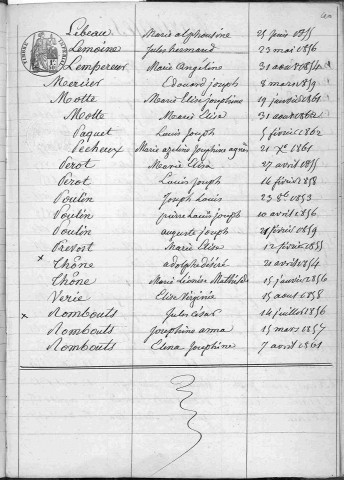 Lebeau Marie alphonsine 25 juin 1855
Lemoine Jules hermand 23 mai 1856
Lempereur Marie angéline 31 aout 1854
Mercier Edouard joseph 8 mars 1859
Motte Marie Elise josephine 19 janvier 1861
Motte Marie Elisa 31 aout 1862
Paquet Louis joseph 5 février 1862
Pecheux Marie azelvis josephine agnès 21 Xbre 1861
Perot Marie Elisa 27 avril 1855
Perot Louis joseph 14 février 1858
Poulin Joseph Louis 23 8bre 1853
Poulin pierre Louis joseph 10 avril 1856
Poulin auguste joseph février 1859
Prevost Marie Elise 12 février 1855
x Thône adolphe désiré 21 avril 1854
Thône Marie Léonise Mathilde 15 janvier 1856
Verie Elise Virginie 15 aout 1858
x Rombouts Jules César 14 juillet 1856
Rombouts Josephine anna 15 mars 1857
Rombouts Elena Josephine 7 avril 1861